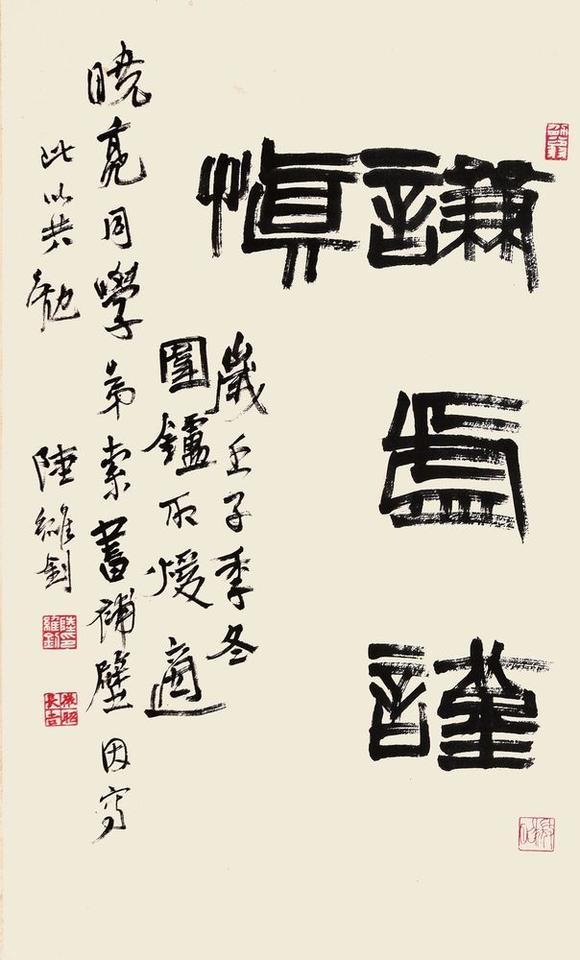 謙虛謹
慎
歲壬子季冬
圍鑪不煖適
曉亮同學弟索書補壁因寫
此以共勉
陸維釗